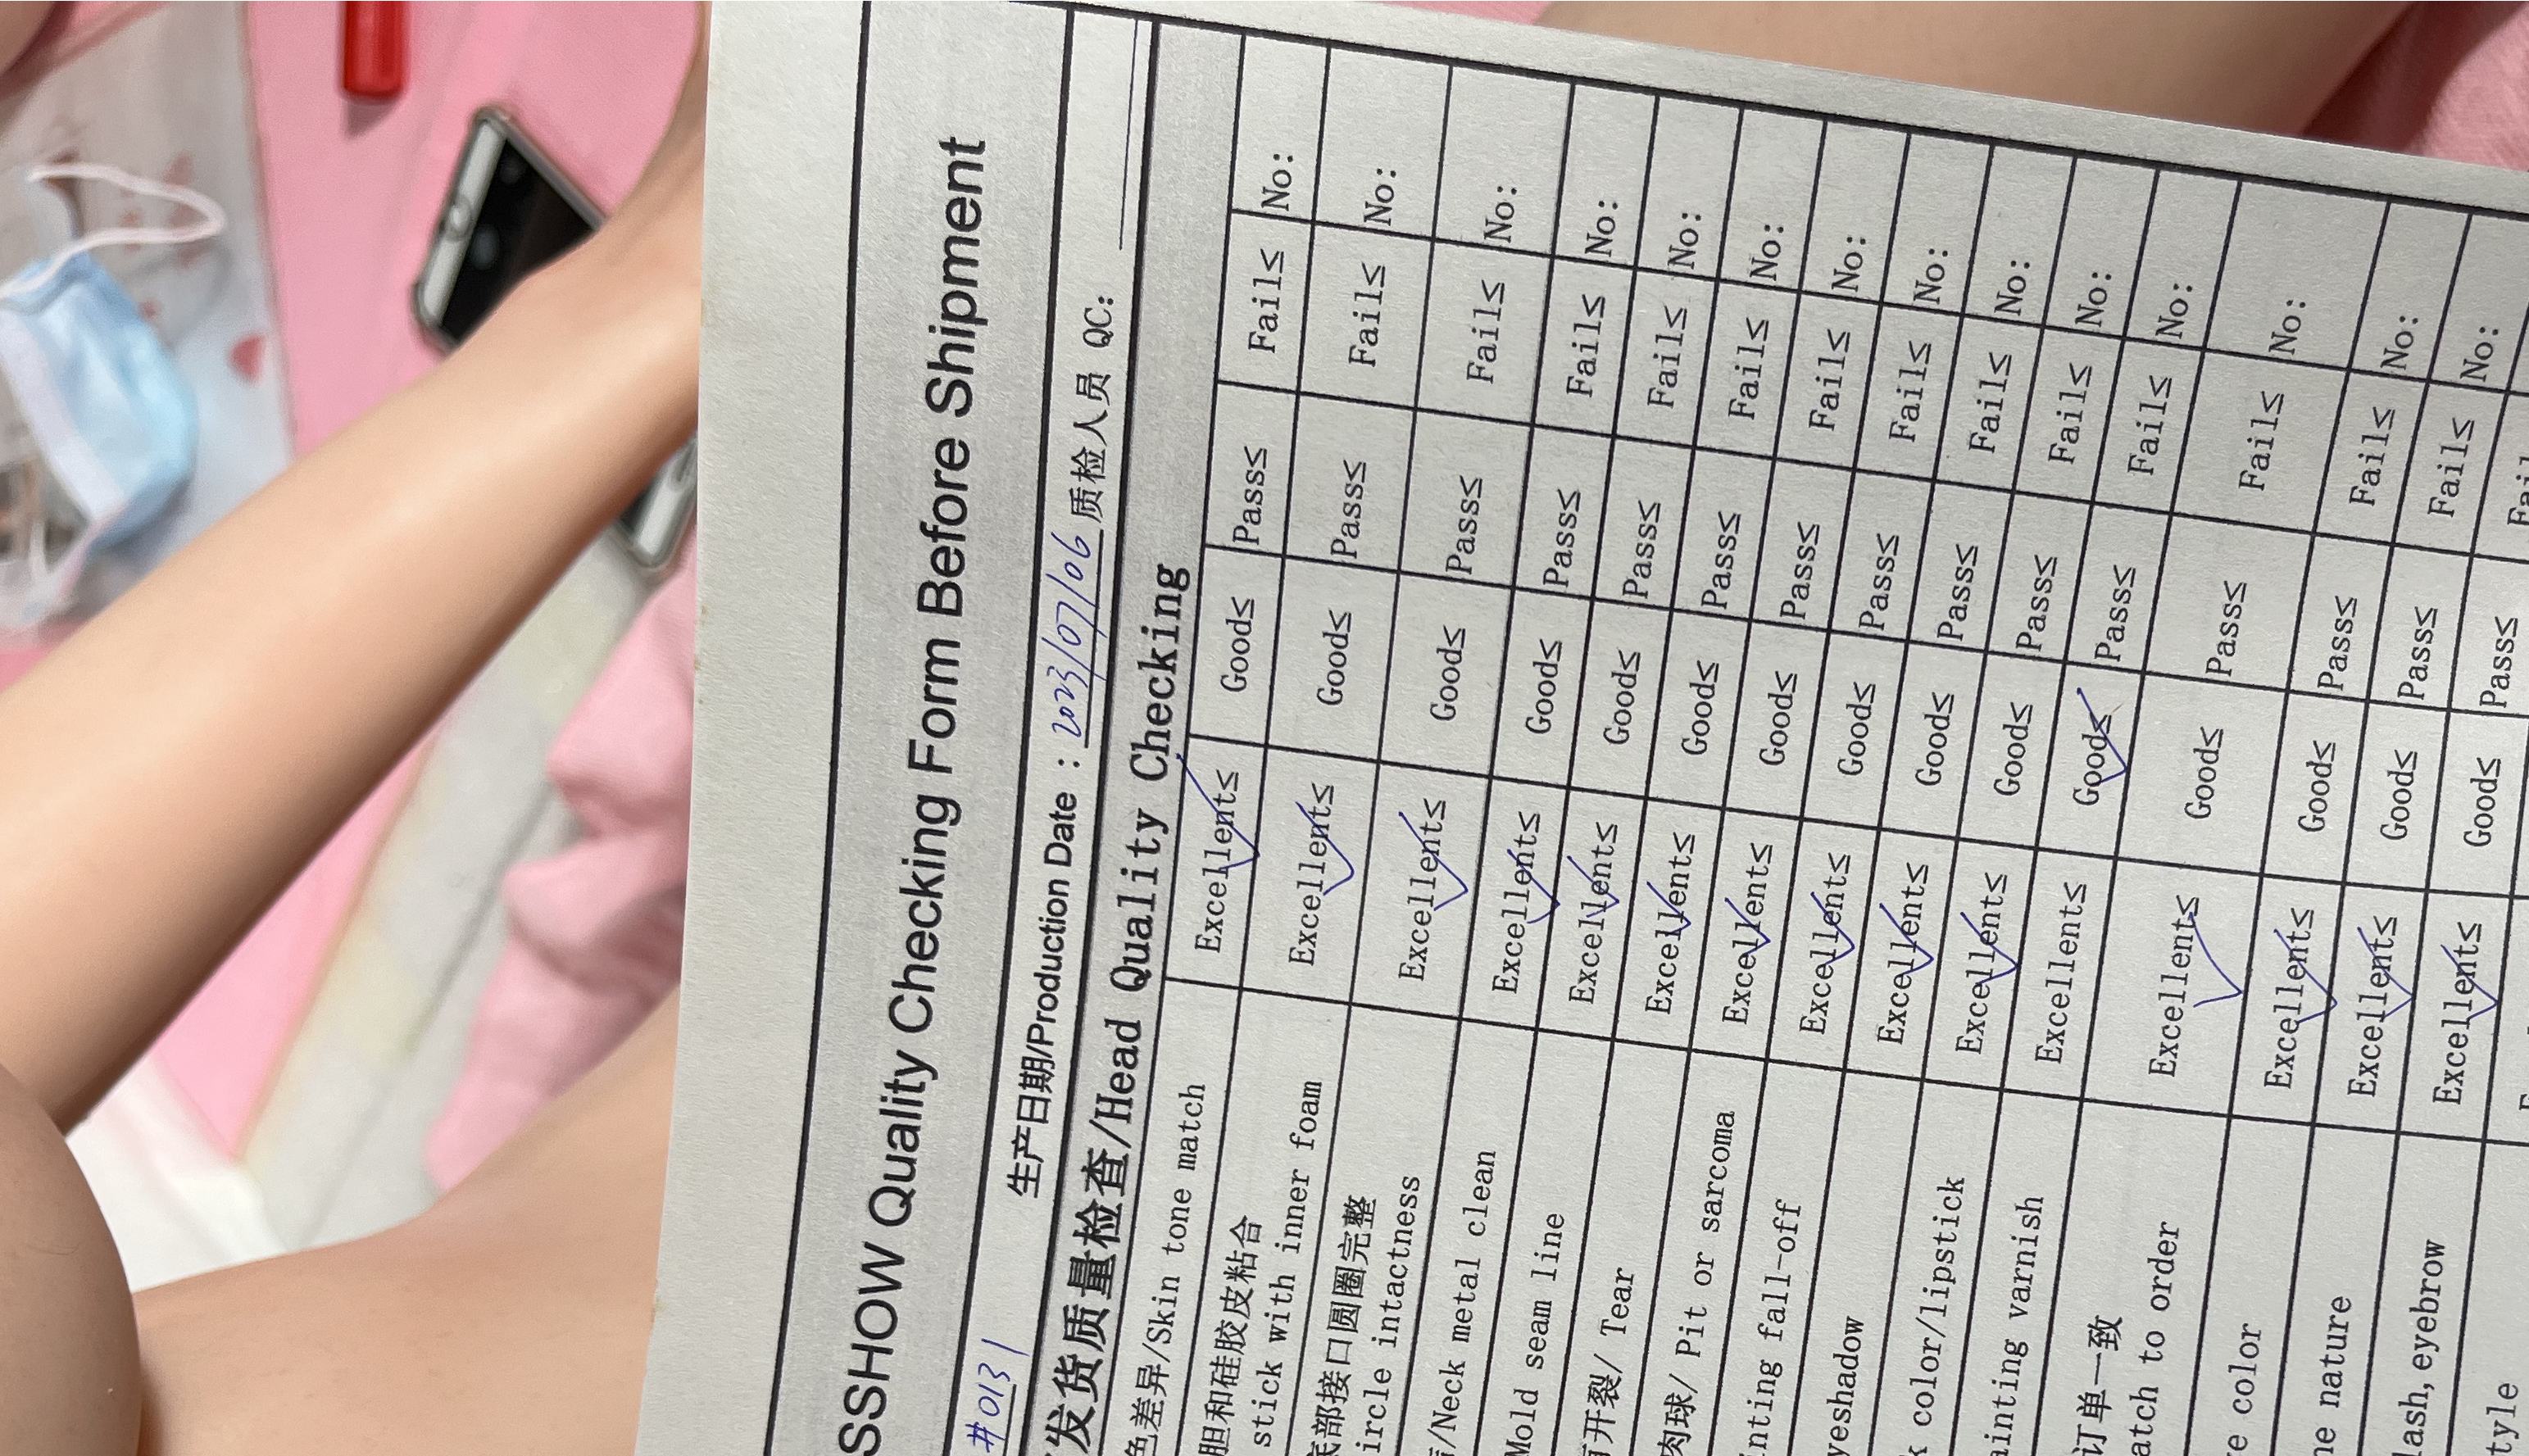 SSHOW Quality Checking Form Before Shipment
#0131 生产日期/Production Date : 2023/07/06 质检人员 QC:
发货质量检查/Head Quality Checking
色差异/Skin tone match Excellent≤ Good≤ Pass≤ Fail≤ No:
胆和硅胶皮粘合
stick with inner foam Excellent≤ Good≤ Pass≤ Fail≤ No:
底部接口圆圈完整
ircle intactness Excellent≤ Good≤ Pass≤ Fail≤ No:
/Neck metal clean Excellent≤ Good≤ Pass≤ Fail≤ No:
Mold seam line Excellent≤ Good≤ Pass≤ Fail≤ No:
有开裂/ Tear Excellent≤ Good≤ Pass≤ Fail≤ No:
肉球/ Pit or sarcoma Excellent≤ Good≤ Pass≤ Fail≤ No:
inting fall-off Excellent≤ Good≤ Pass≤ Fail≤ No:
yeshadow Excellent≤ Good≤ Pass≤ Fail≤ No:
color/lipstick Excellent≤ Good≤ Pass≤ Fail≤ No:
ainting varnish Excellent≤ Good≤ Pass≤ Fail≤ No:
订单一致
atch to order Excellent≤ Good≤ Pass≤ Fail≤ No:
re color Excellent≤ Good≤ Pass≤ Fail≤ No:
ne nature Excellent≤ Good≤ Pass≤ Fail≤ No:
lash,eyebrow Excellent≤ Good≤ Pass≤ Fail
style